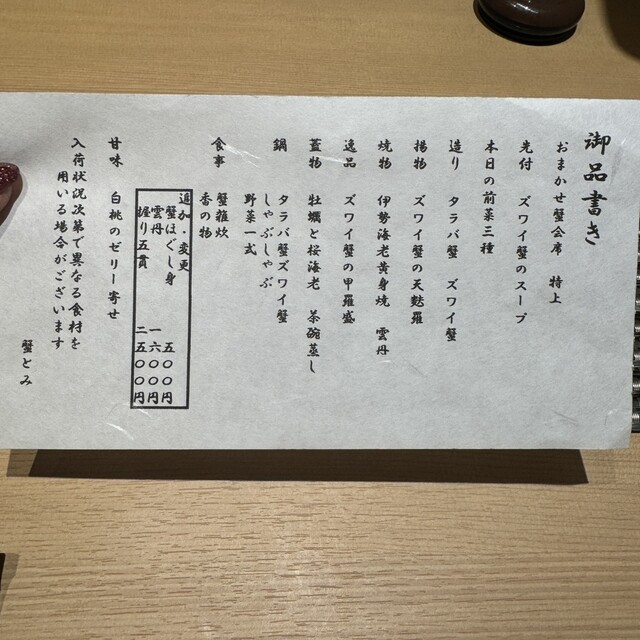 御品書き
おまかせ蟹会席 特上
先付 ズワイ蟹のスープ
本日の前菜三種
造り タラバ蟹 ズワイ蟹
揚物 ズワイ蟹の天麩羅
焼物 伊勢海老黄身焼 雲丹
逸品 ズワイ蟹の甲羅盛
蓋物 牡蠣と桜海老 茶碗蒸し
鍋 タラバ蟹ズワイ蟹
しゃぶしゃぶ
野菜一式
食事 蟹雑炊
香の物
追加・変更
蟹ほぐし身 五〇〇円
雲丹 一六〇〇円
握り五貫 二五〇〇円
甘味 白桃のゼリー寄せ
入荷状況次第で異なる食材を
用いる場合がございます
蟹とみ